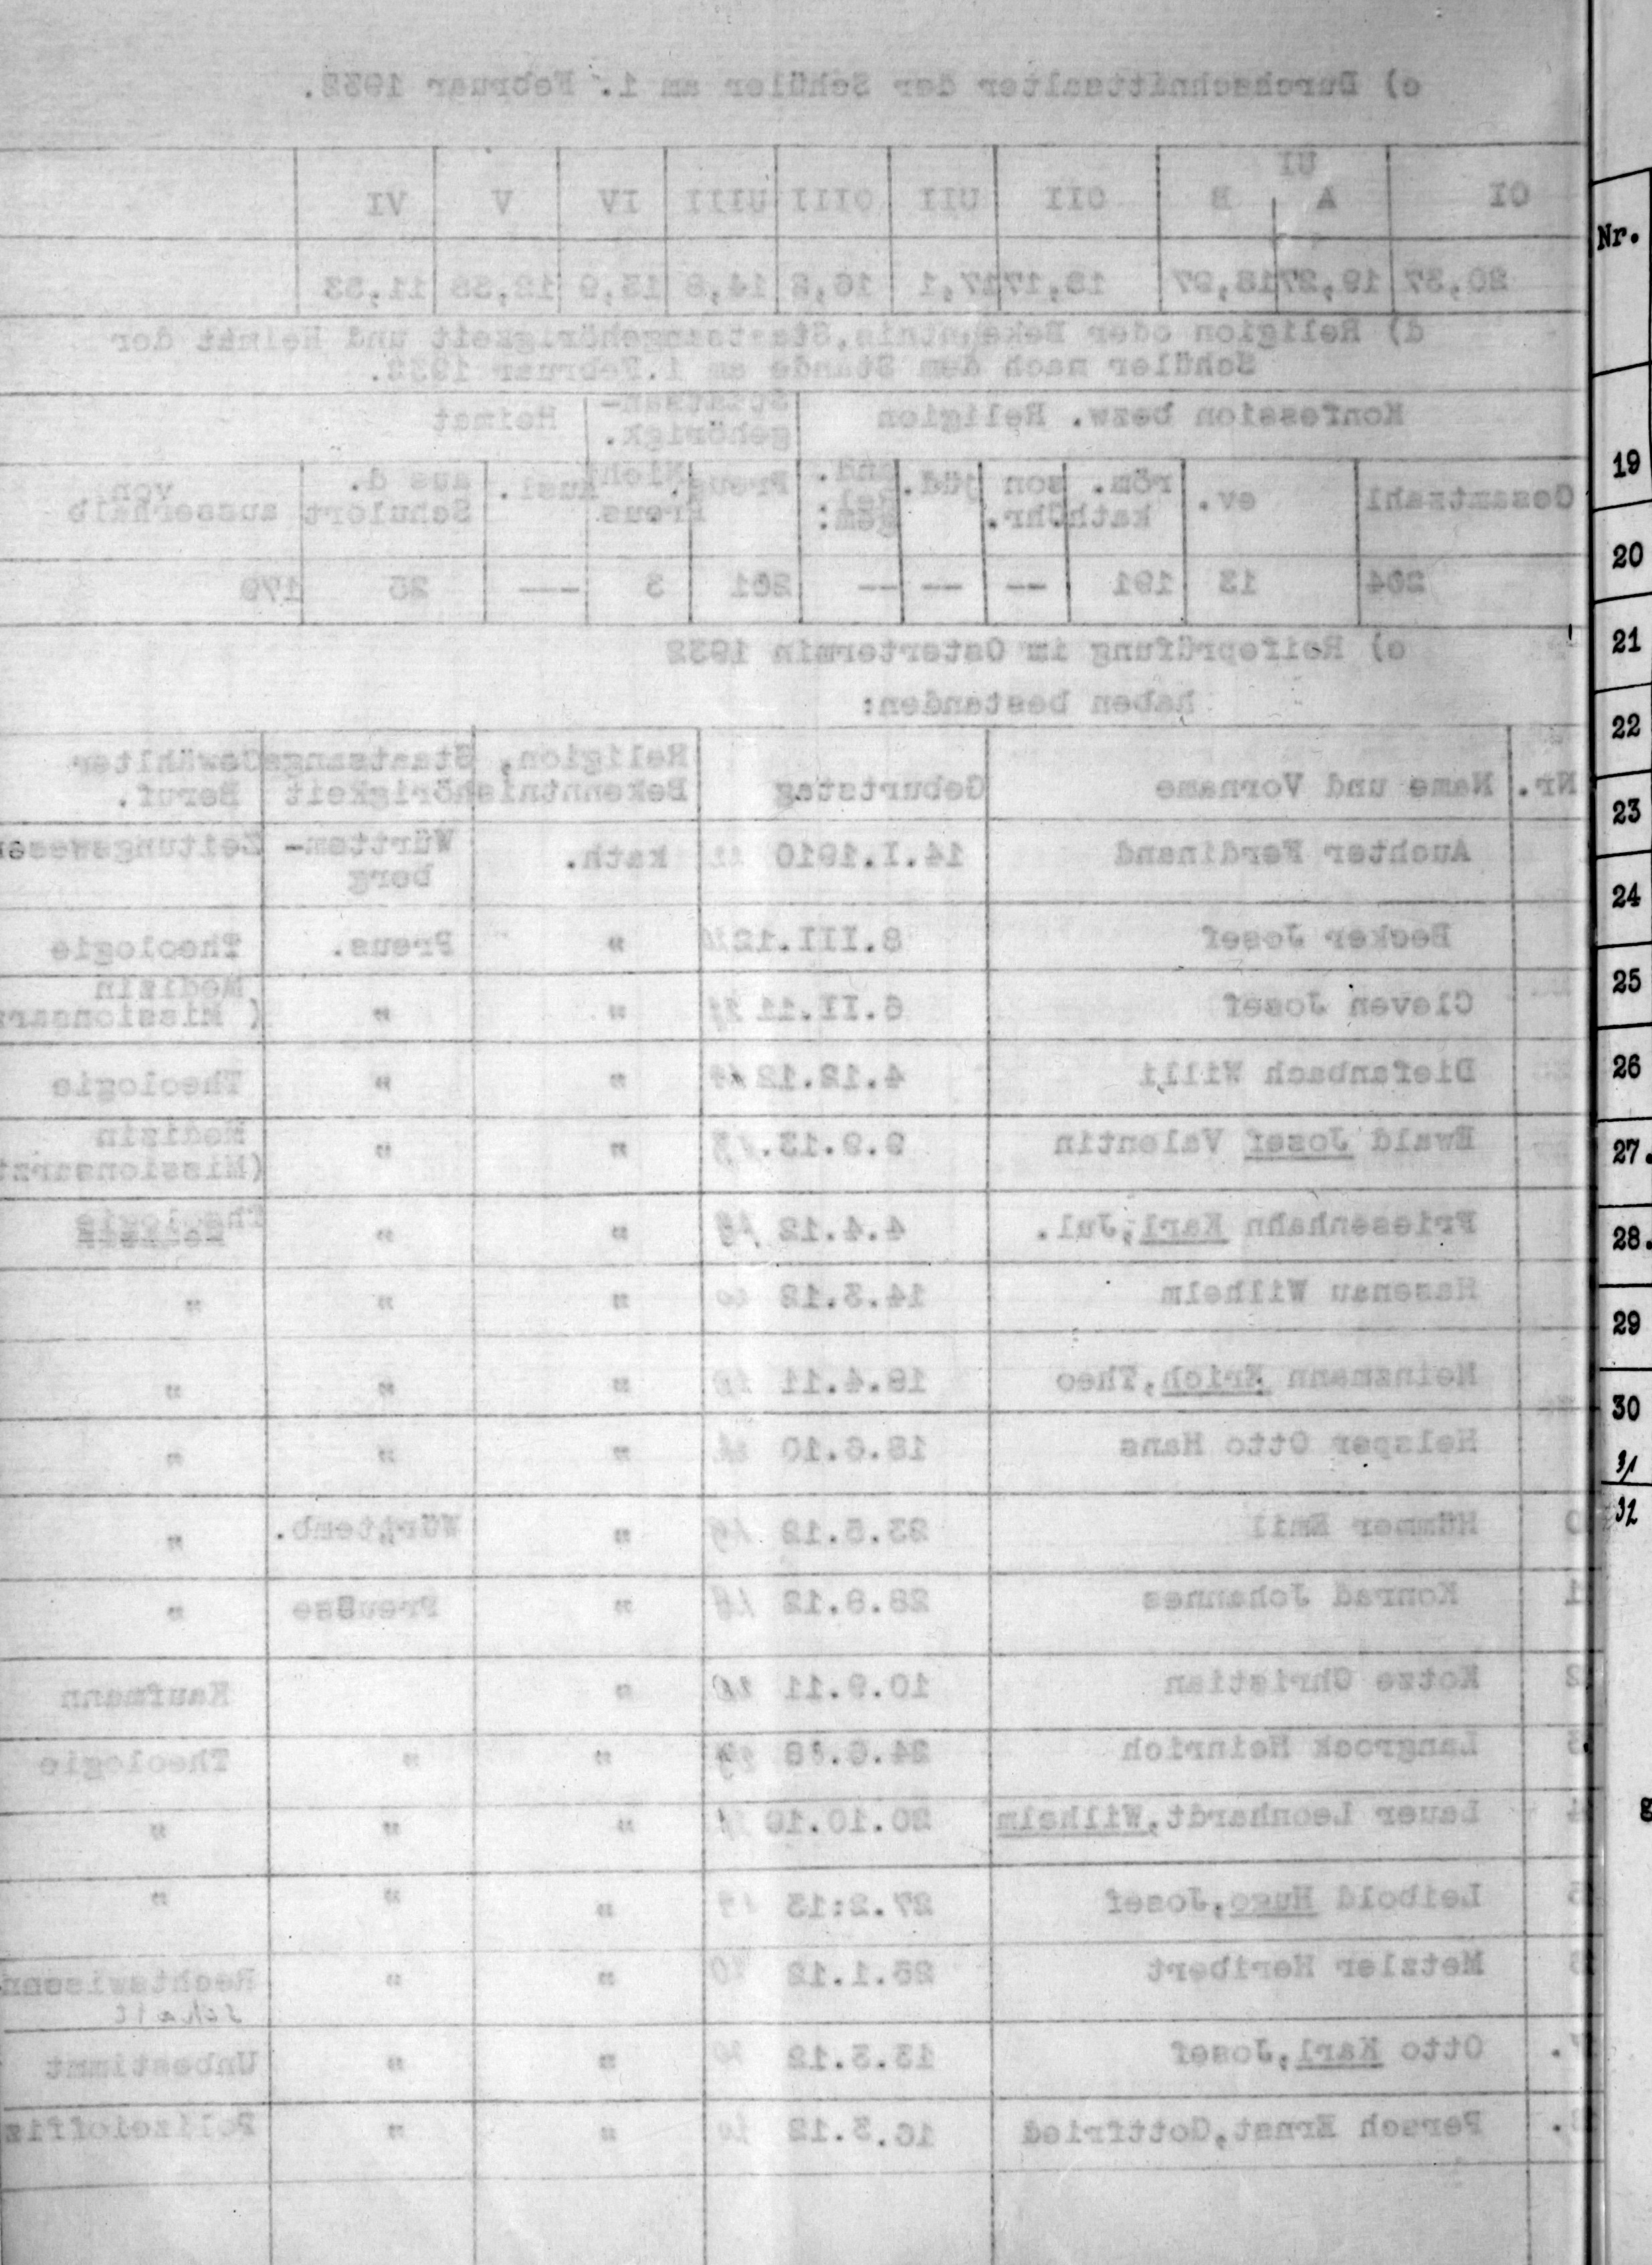 c) Durchschnittsalter der Schüler am 1. Februar 1932.
OI UI A B OII UII OIII UIII IV V VI
20,37 19,27 18,97 18,17 17,1 16,2 14,8 13,9 12,38 11,33
d) Religion oder Bekenntnis, Staatsangehörigkeit und Heimat der
Schüler nach dem Stande am 1. Februar 1932.
Konfession bezw. Religion Staatsan-gehörigk. Heimat
Gesamtzahl ev. röm. kath. jüd. Preuß. Nicht Preus Ausl. aus d. Schulort von ausserhalb
204 13 191 -- -- -- 201 3 --- 25 179
e) Reifeprüfung im Ostertermin 1932
haben bestanden:
Nr. Name und Vorname Geburtstag Religion, Bekenntnis Staatsangehörigkeit Gewählter Beruf.
Auchter Ferdinand 14.I.1910 kath. Württem-berg Zeitungswesen
Becker Josef 8.III.12 " Preus. Theologie
Cleven Josef 6.II.11 " " Medizin ( Missionsarz
Diefenbach Willi 4.12.12 " " Theologie
Ewald Josef Valentin 9.9.13. " " Medizin (Missionsarzt
Friesenhahn Karl, Jul. 4.4.12 " " Theologie
Hasenau Wilhelm 14.3.12 " " "
Heinzmann Erich, Theo 19.4.11 " " "
Helsper Otto Hans 18.6.10 " " "
Hümmer Emil 23.5.12 " Württemb. "
Konrad Johannes 28.8.12 " Preusse "
Kotze Christian 10.9.11 " Kaufmann
Langrock Heinrich 24.6. " " Theologie
Lauer Leonhardt, Wilhelm 20.10.10 " " "
Leibold Hugo, Josef 27.2:13 " " "
Metzler Heribert 25.1.12 " " Rechtswissen schaft
Otto Karl, Josef 13.3.12 " " Unbestimmt
Persch Ernst, Gottfried 16.3.12 " " Polizeioffiz
Nr.
19
20
21
22
23
24
25
26
27.
28.
29
30
31
32